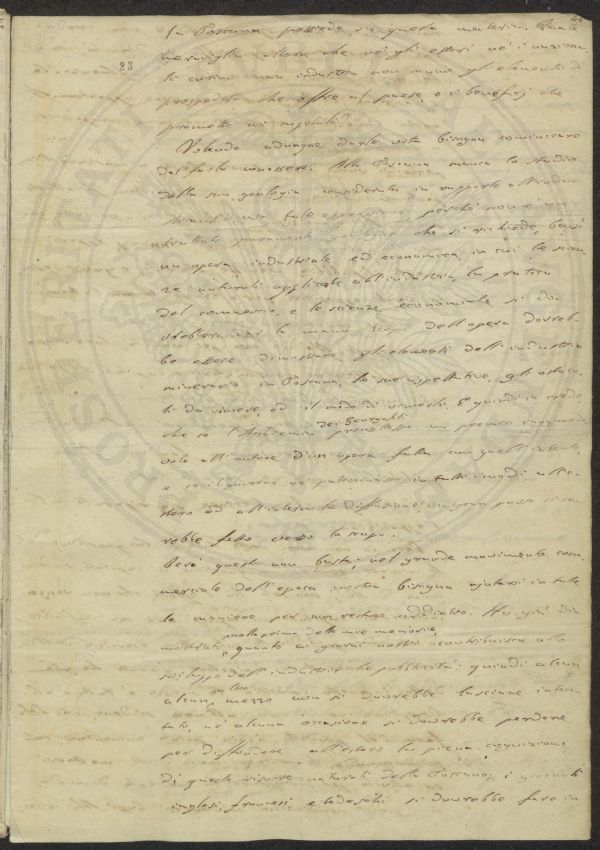 48
la Toscana possiede in questa materia. Quale
meraviglia allora che nè gli esteri nè i naziona-
li curino una industria non meno gli elementi di
23
prosperità che offre al paese, e i benefizj che
promette ai capitali?
Volendo adunque darle vita bisogna cominciare
dal farla conoscere. Alla Toscana manca lo studio
della sua geologia considerata in rapporto all'indu-
stria: uso tale espressione, perchè non è un
trattato puramente che si richiede, bensì
un'opera industriale ed economica, in cui le scien-
ze naturali applicate all'industria, la pratica
del commercio, e le scienze economiche si do-
vrebbero dar la mano. Scopo dell'opera dovreb-
be essere dimostrare gli elementi dell'industria
mineraria in Toscana, le sue aspettative, gli ostaco-
li da vincere, ed il modo di vincerli. E quindi io credo,
dei Georgofili
che se l'Accademia promettesse un premio ragguarde-
vole all'autore d'un'opera fatta con quell'intento,
e se il governo ne patrocinasse in tutti i modi all'e-
stero ed all'interno la diffusione, un gran passo si sa-
rebbe fatto verso lo scopo.
Però questo non basta; nel grande movimento com-
merciale dell'epoca nostra bisogna ajutarsi in tutte
le maniere per non restare addietro. Ho già di-
nella prima delle mie memorie,
mostrato quanto ai giorni nostri contribuisca allo
sviluppo dell'industria la pubblicità: quindi
alcun mezzo non si dovrebbe lasciare inten-
tato, nè alcuna occasione si dovrebbe perdere
per diffondere all'estero la piena cognizione
di queste risorse naturali della Toscana; i giornali
inglesi, francesi, e tedeschi si dovrebbe fare in